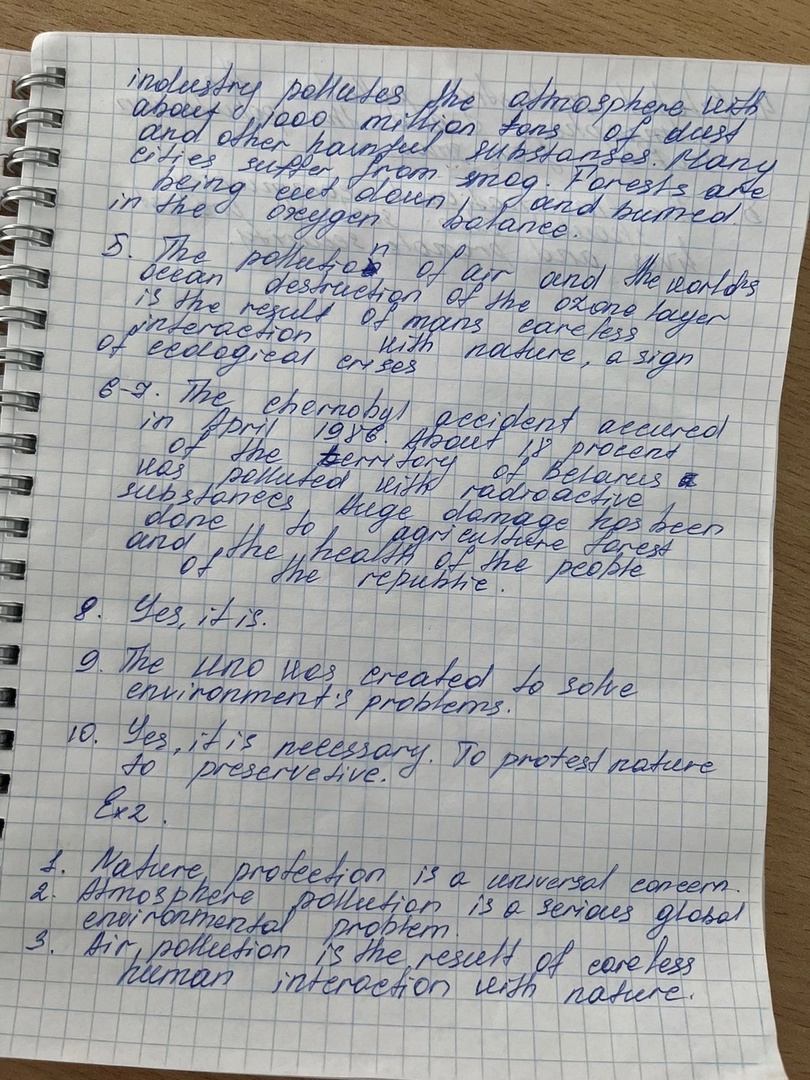 industry pollutes the atmosphere with
about 1000 million tons of dust
and other harmful substanses. Many
cities suffer from smog. Forests are
being cut down and burned.
in the oxygen balance.
5. The pollution of air and the world's
ocean destruction of the ozone layer
is the result of mans careless
interaction with nature, a sign
of ecological crises
6-7. The chernobyl accident accured
in April 1986. About 18 procent
of the territory of Belarus
was polluted with radioactive
substances Huge damage has been
done to agriculture forest
and the health of the people
of the republic.
8. Yes, it is.
9. The UNO was created to solve
environment's problems.
10. Yes, it is necessary. To protest nature
to preservetive.
Ex2.
1. Nature protection is a universal concern.
2. Atmosphere pollution is a serious global
environmental problem.
3. Air pollution is the result of careless
human interaction with nature.